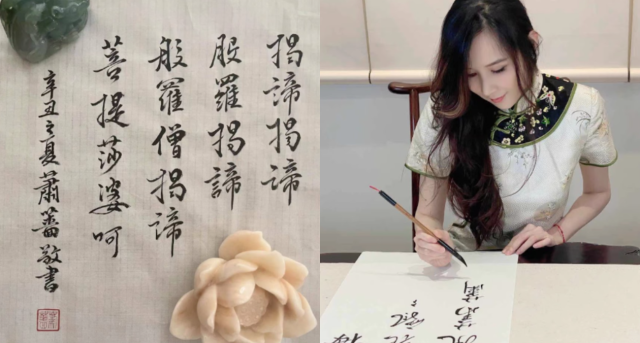 揭諦揭諦
般羅揭諦
般羅僧揭諦
菩提莎婆呵
辛丑之夏蕭薔敬書